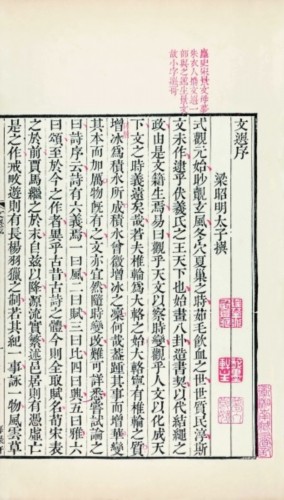 文選序
梁昭明太子撰
式觀元始眇覿玄風冬穴夏巢之時茹毛飲血之世世質民淳斯
文未作逮乎伏羲氏之王天下也始畫八卦造書契以代結繩之
政由是文籍生焉易曰觀乎天文以察時變觀乎人文以化成天
下文之時義遠矣哉若夫椎輪爲大輅之始大輅寧有椎輪之質
增冰爲積水所成積水曾微增冰之凜何哉蓋踵其事而增華變
其本而加厲物旣有之文亦宜然隨時變改難可詳悉嘗試論之
曰詩序云詩有六義焉一曰風二曰賦三曰比四曰興五曰雅六
曰頌至於今之作者異乎古昔古詩之體今則全取賦名荀宋表
之於前賈馬繼之於末自茲以降源流實繁述邑居則有憑虛亡
是之作戒畋遊則有長楊羽獵之制若其紀一事詠一物風雲草